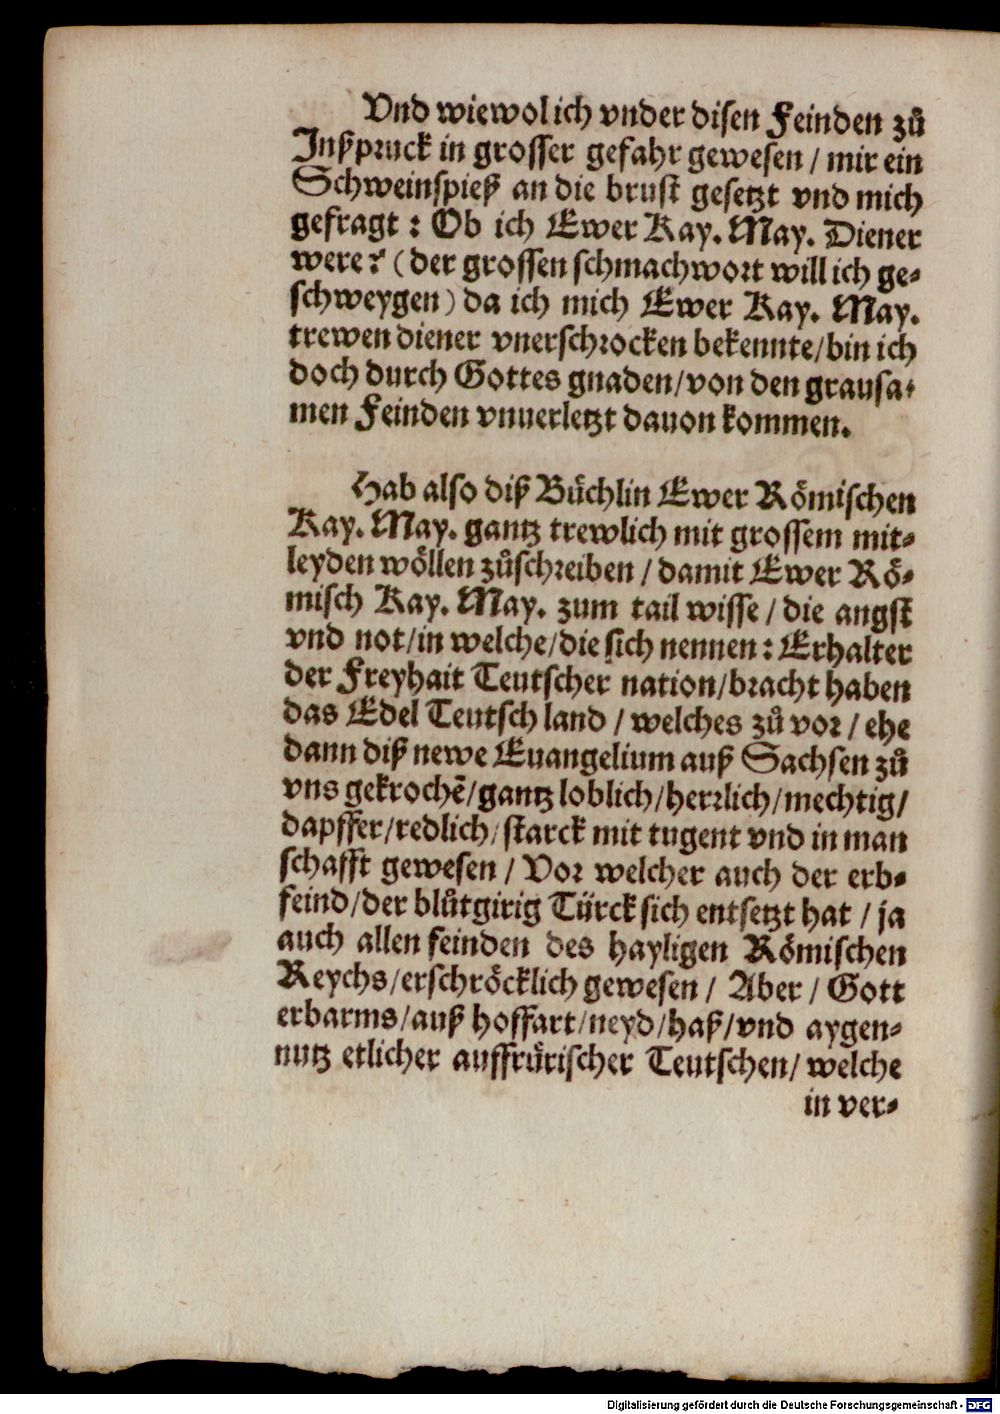 Vnd wiewol ich vnder disen Feinden zů
Jnßpruck in grosser gefahr gewesen / mir ein
Schweinspieß an die brust gesetzt vnd mich
gefragt : Ob ich Ewer Kay. May. Diener
were? (der grossen schmachwort will ich ge-
schweygen) da ich mich Ewer Kay. May.
trewen diener vnerschrocken bekennte/bin ich
doch durch Gottes gnaden/von den grausa-
men Feinden vnuerletzt dauon kommen.
Hab also diß Bůchlin Ewer Römischen
Kay. May. gantz trewlich mit grossem mit-
leyden wöllen zůschreiben / damit Ewer Rö-
misch Kay. May. zum tail wisse / die angst
vnd not/in welche/die sich nennen : Erhalter
der Freyhait Teutscher nation/bracht haben
das Edel Teutsch land / welches zů vor / ehe
dann diß newe Euangelium auß Sachsen zů
vns gekrochẽ/gantz loblich/herrlich/mechtig/
dapffer/redlich/starck mit tugent vnd in man
schafft gewesen / Vor welcher auch der erb-
feind/der blůtgirig Türck sich entsetzt hat / ja
auch allen feinden des hayligen Römischen
Reychs/erschröcklich gewesen / Aber / Gott
erbarms/auß hoffart/neyd/haß/vnd aygen-
nutz etlicher auffrůrischer Teutschen/ welche
in ver-
Digitalisierung gefördert durch die Deutsche Forschungsgemeinschaft - DFG